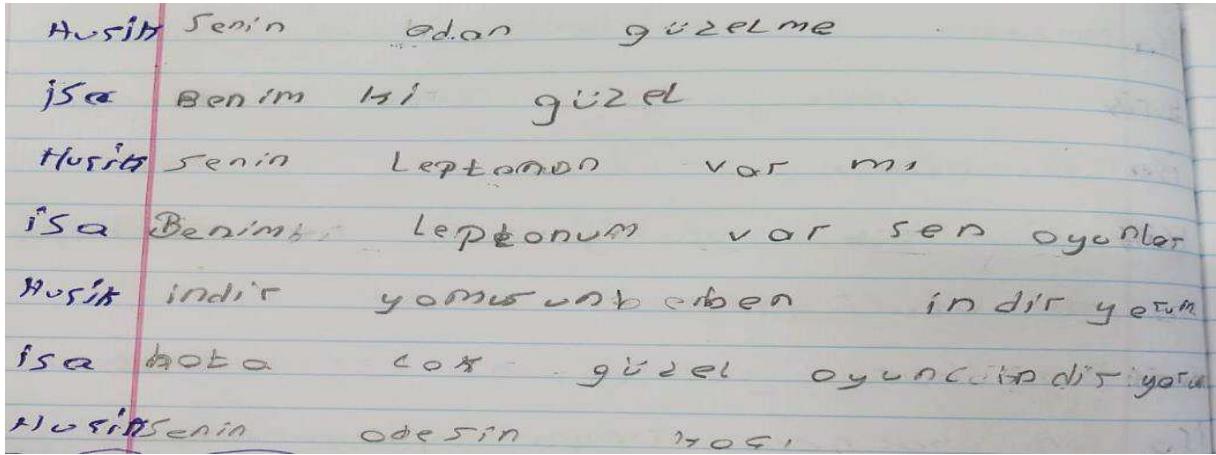 Husik Senin odan güzelme
isa Benim ki güzel
Husik senin Leptonon var mı
isa Benim Leptonum var sen oyunlar
Husik indir yomusun ben indir yerum
isa hota cok güzel oyunc indir yoru
Husik Senin odesin